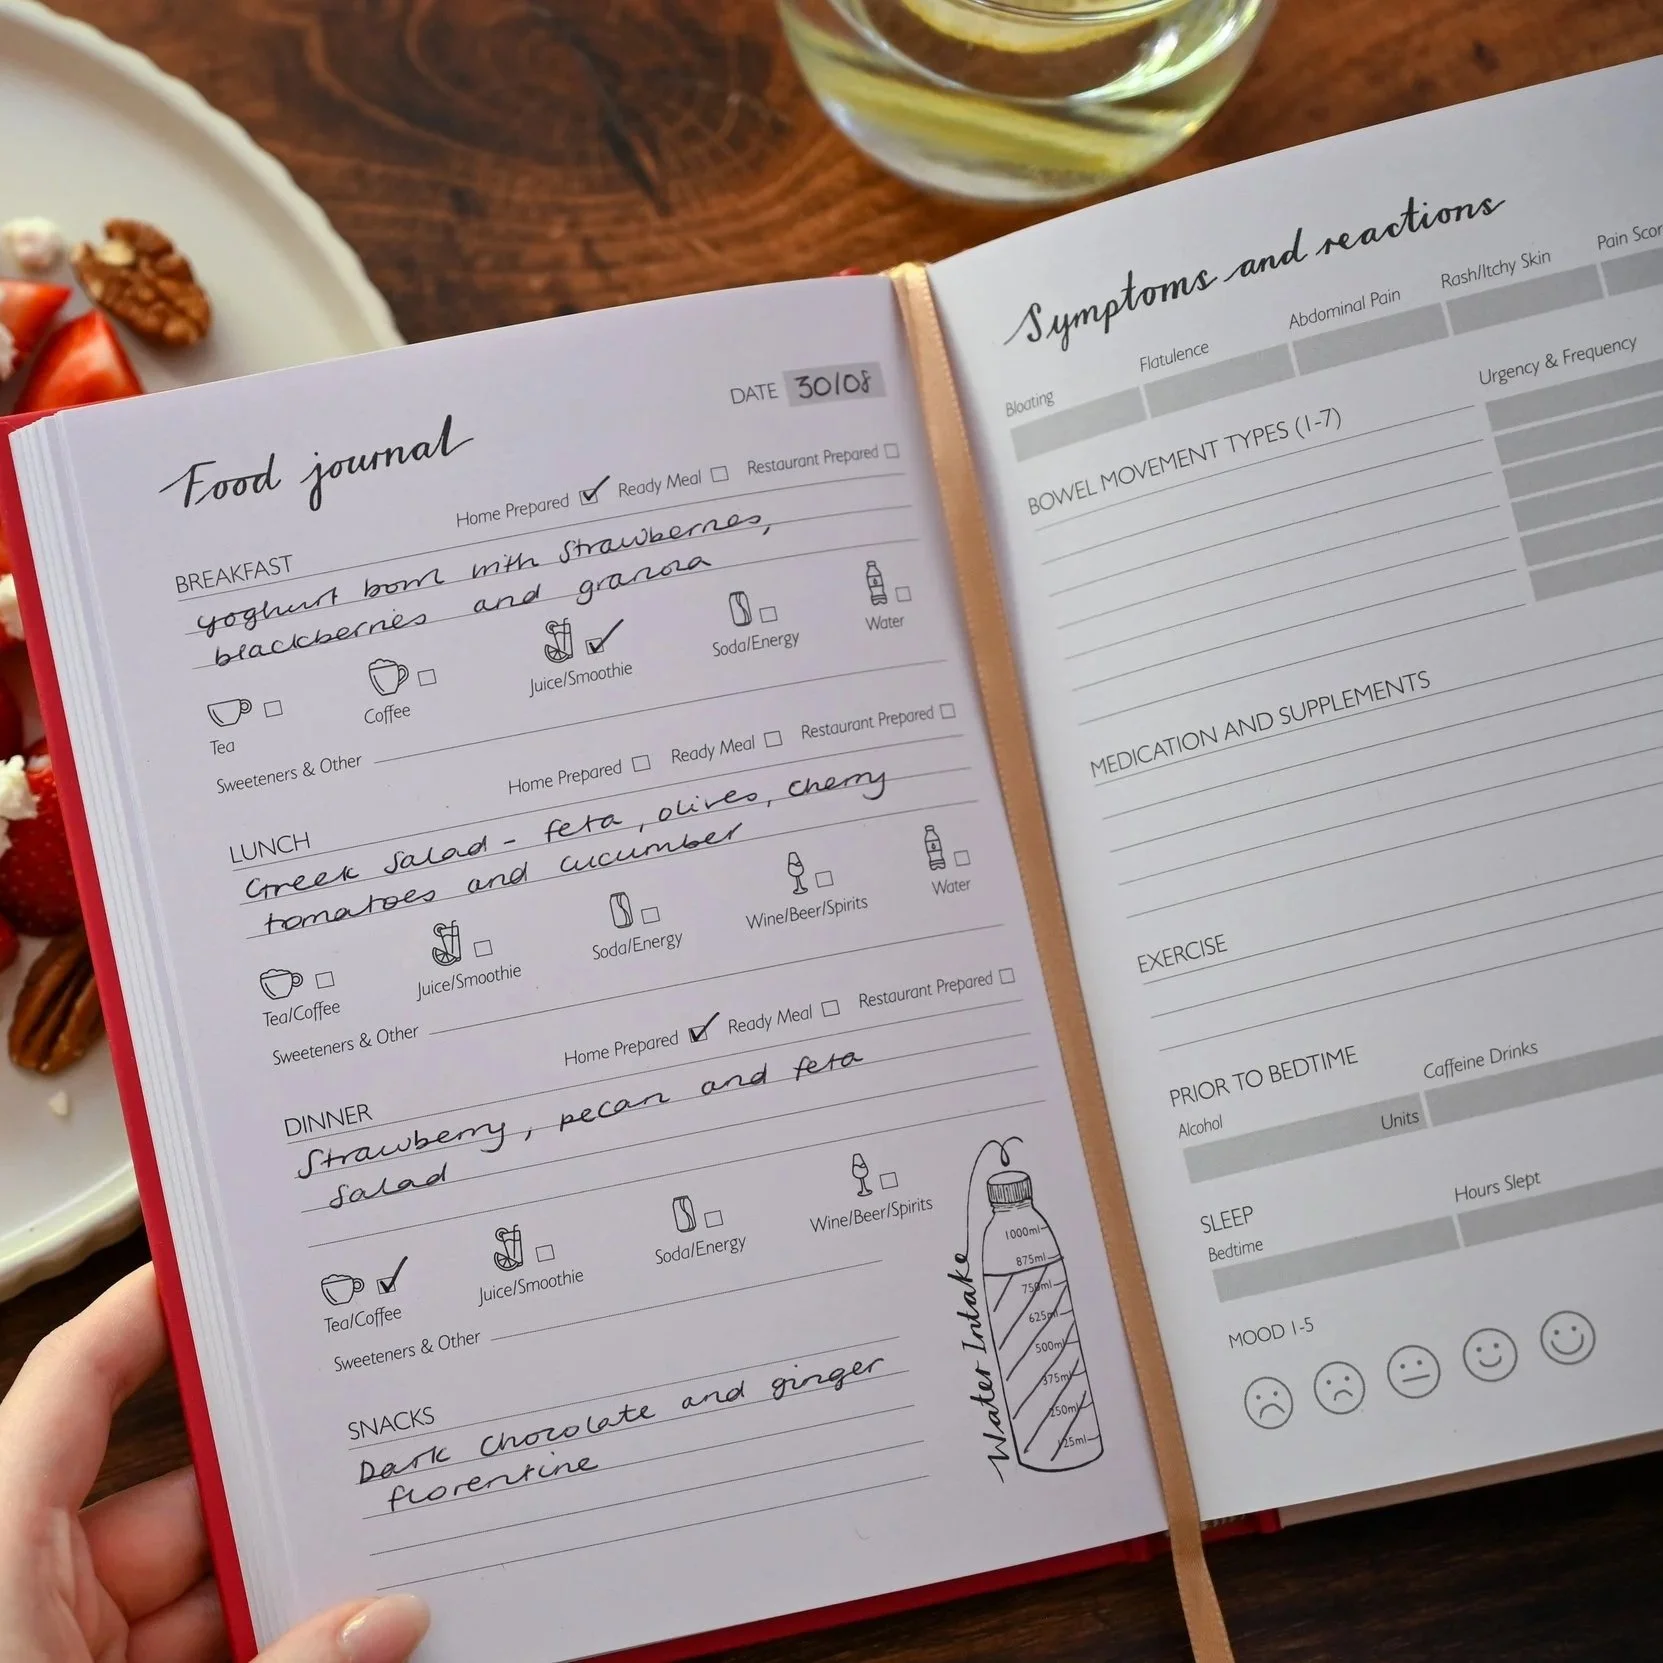 Food journal
DATE 30/08
Home Prepared Ready Meal Restaurant Prepared
BREAKFAST
yoghurt bowl with strawberries,
blackberries and granola
Tea Coffee Juice/Smoothie Soda/Energy Water
Sweeteners & Other
Home Prepared Ready Meal Restaurant Prepared
LUNCH
Greek salad - feta, olives, cherry
tomatoes and cucumber
Tea/Coffee Juice/Smoothie Soda/Energy Wine/Beer/Spirits Water
Sweeteners & Other
Home Prepared Ready Meal Restaurant Prepared
DINNER
Strawberry, pecan and feta
salad
Tea/Coffee Juice/Smoothie Soda/Energy Wine/Beer/Spirits
Sweeteners & Other
SNACKS
Dark chocolate and ginger
florentine
Water Intake
1000ml
875ml
750ml
625ml
500ml
375ml
250ml
125ml
Symptoms and reactions
Bloating Flatulence Abdominal Pain Rash/Itchy Skin Pain Scor
BOWEL MOVEMENT TYPES (1-7) Urgency & Frequency
MEDICATION AND SUPPLEMENTS
EXERCISE
PRIOR TO BEDTIME
Alcohol Units Caffeine Drinks
SLEEP
Bedtime Hours Slept
MOOD 1-5